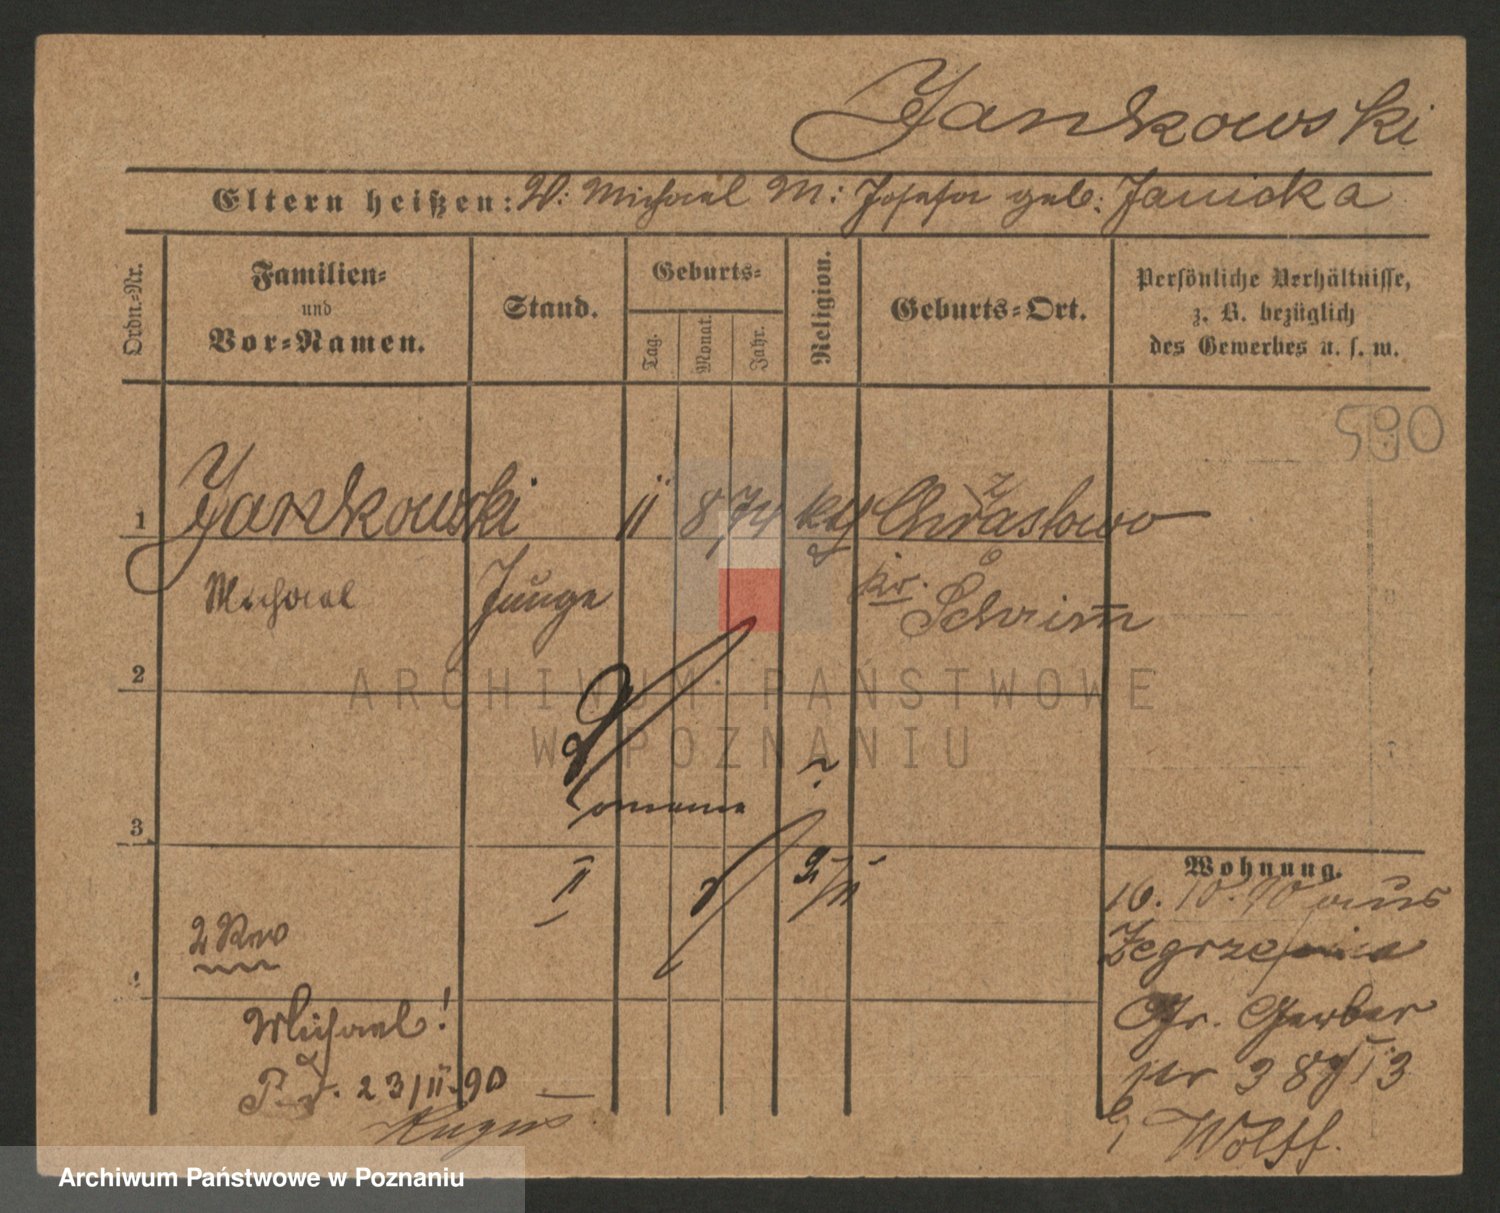 Jankowski
Eltern heißen: V: Michael M: Josefa geb: Janicka
Ordn.-Nr.
Familien-
und
Vor-Namen.
Stand.
Geburts-
Tag.
Monat.
Jahr.
Religion.
Geburts-Ort.
Persönliche Verhältnisse,
z. B. bezüglich
des Gewerbes u. s. w.
590
1 Jankowski 11 8, 74 kth Chrząstowo
Michael Junge kr. Schrimm
2
ARCHIWUM PAŃSTWOWE
W POZNANIU
?
3
II
Wohnung.
16. 10. 90 aus
Zegrze
Gr. Gerber
nr 38 I 3
b/ Wolff.
Michael!
P. 23/II 90
Archiwum Państwowe w Poznaniu